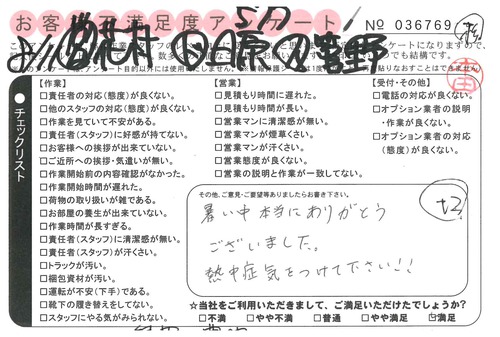 お客様不満足度アンケート
№ 036769
チェックリスト
【作業】
□責任者の対応(態度)が良くない。
□他のスタッフの対応(態度)が良くない。
□作業を見ていて不安がある。
□責任者(スタッフ)に好感が持てない。
□お客様への挨拶が出来ていない。
□ご近所への挨拶・気遣いが無い。
□作業開始前の内容確認がなかった。
□作業開始時間が遅れた。
□荷物の取り扱いが雑である。
□お部屋の養生が出来ていない。
□作業時間が長すぎる。
□責任者(スタッフ)に清潔感が無い。
□責任者(スタッフ)が汗くさい。
□トラックが汚い。
□梱包資材が汚い。
□運転が不安(下手)である。
□靴下の履き替えをしてない。
□スタッフにやる気がみられない。
【営業】
□見積もり時間に遅れた。
□見積もり時間が長い。
□営業マンに清潔感が無い。
□営業マンが煙草くさい。
□営業マンが汗くさい。
□営業態度が良くない。
□営業の説明と作業が一致してない。
【受付・その他】
□電話の対応が良くない。
□オプション業者の説明
・作業が良くない。
□オプション業者の対応
(態度)が良くない。
その他、ご意見・ご要望等ありましたらお書き下さい。
暑い中本当にありがとう
ございました。
熱中症気をつけて下さい!!
☆当社をご利用いただきまして、ご満足いただけたでしょうか?
□不満 □やや不満 □普通 □やや満足 ☑満足